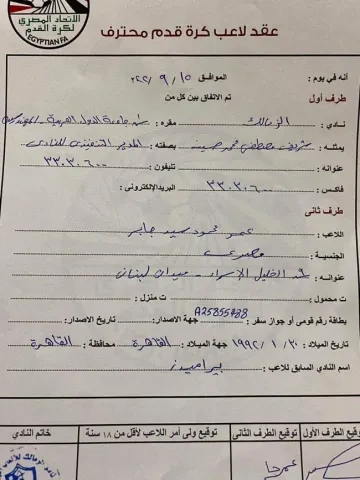 الاتحاد المصري
لكرة القدم
EGYPTIAN FA
عقد لاعب كرة قدم محترف
أنه في يوم : الموافق ١٥ / ٩ / ٢٠٢٢
تم الاتفاق بين كل من
طرف أول
نادي : الزمالك مقره : ش جامعة الدول العربية - المهندسين
يمثله : شريف مصطفى محمد حسين بصفته : المدير التنفيذي للنادي
عنوانه : تليفون : ٣٣٠٣٠٦٠٠
فاكس : ٣٣٠٣٠٦٠٠ البريد الإلكتروني :
طرف ثانى
اللاعب : عمر محمود سيد جابر
الجنسية : مصري
عنوانه : ش الخليل الإسراء - ميدان لبنان
ت محمول : ت منزل :
بطاقة رقم قومى أو جواز سفر : A25855488 جهة الاصدار : تاريخ الاصدار :
تاريخ الميلاد : ٣٠ / ١ / ١٩٩٢ جهة الميلاد : القاهرة محافظة : القاهرة
اسم النادي السابق للاعب : بيراميدز
توقيع الطرف الأول توقيع الطرف الثانى توقيع ولى أمر اللاعب لأقل من ١٨ سنة خاتم النادي